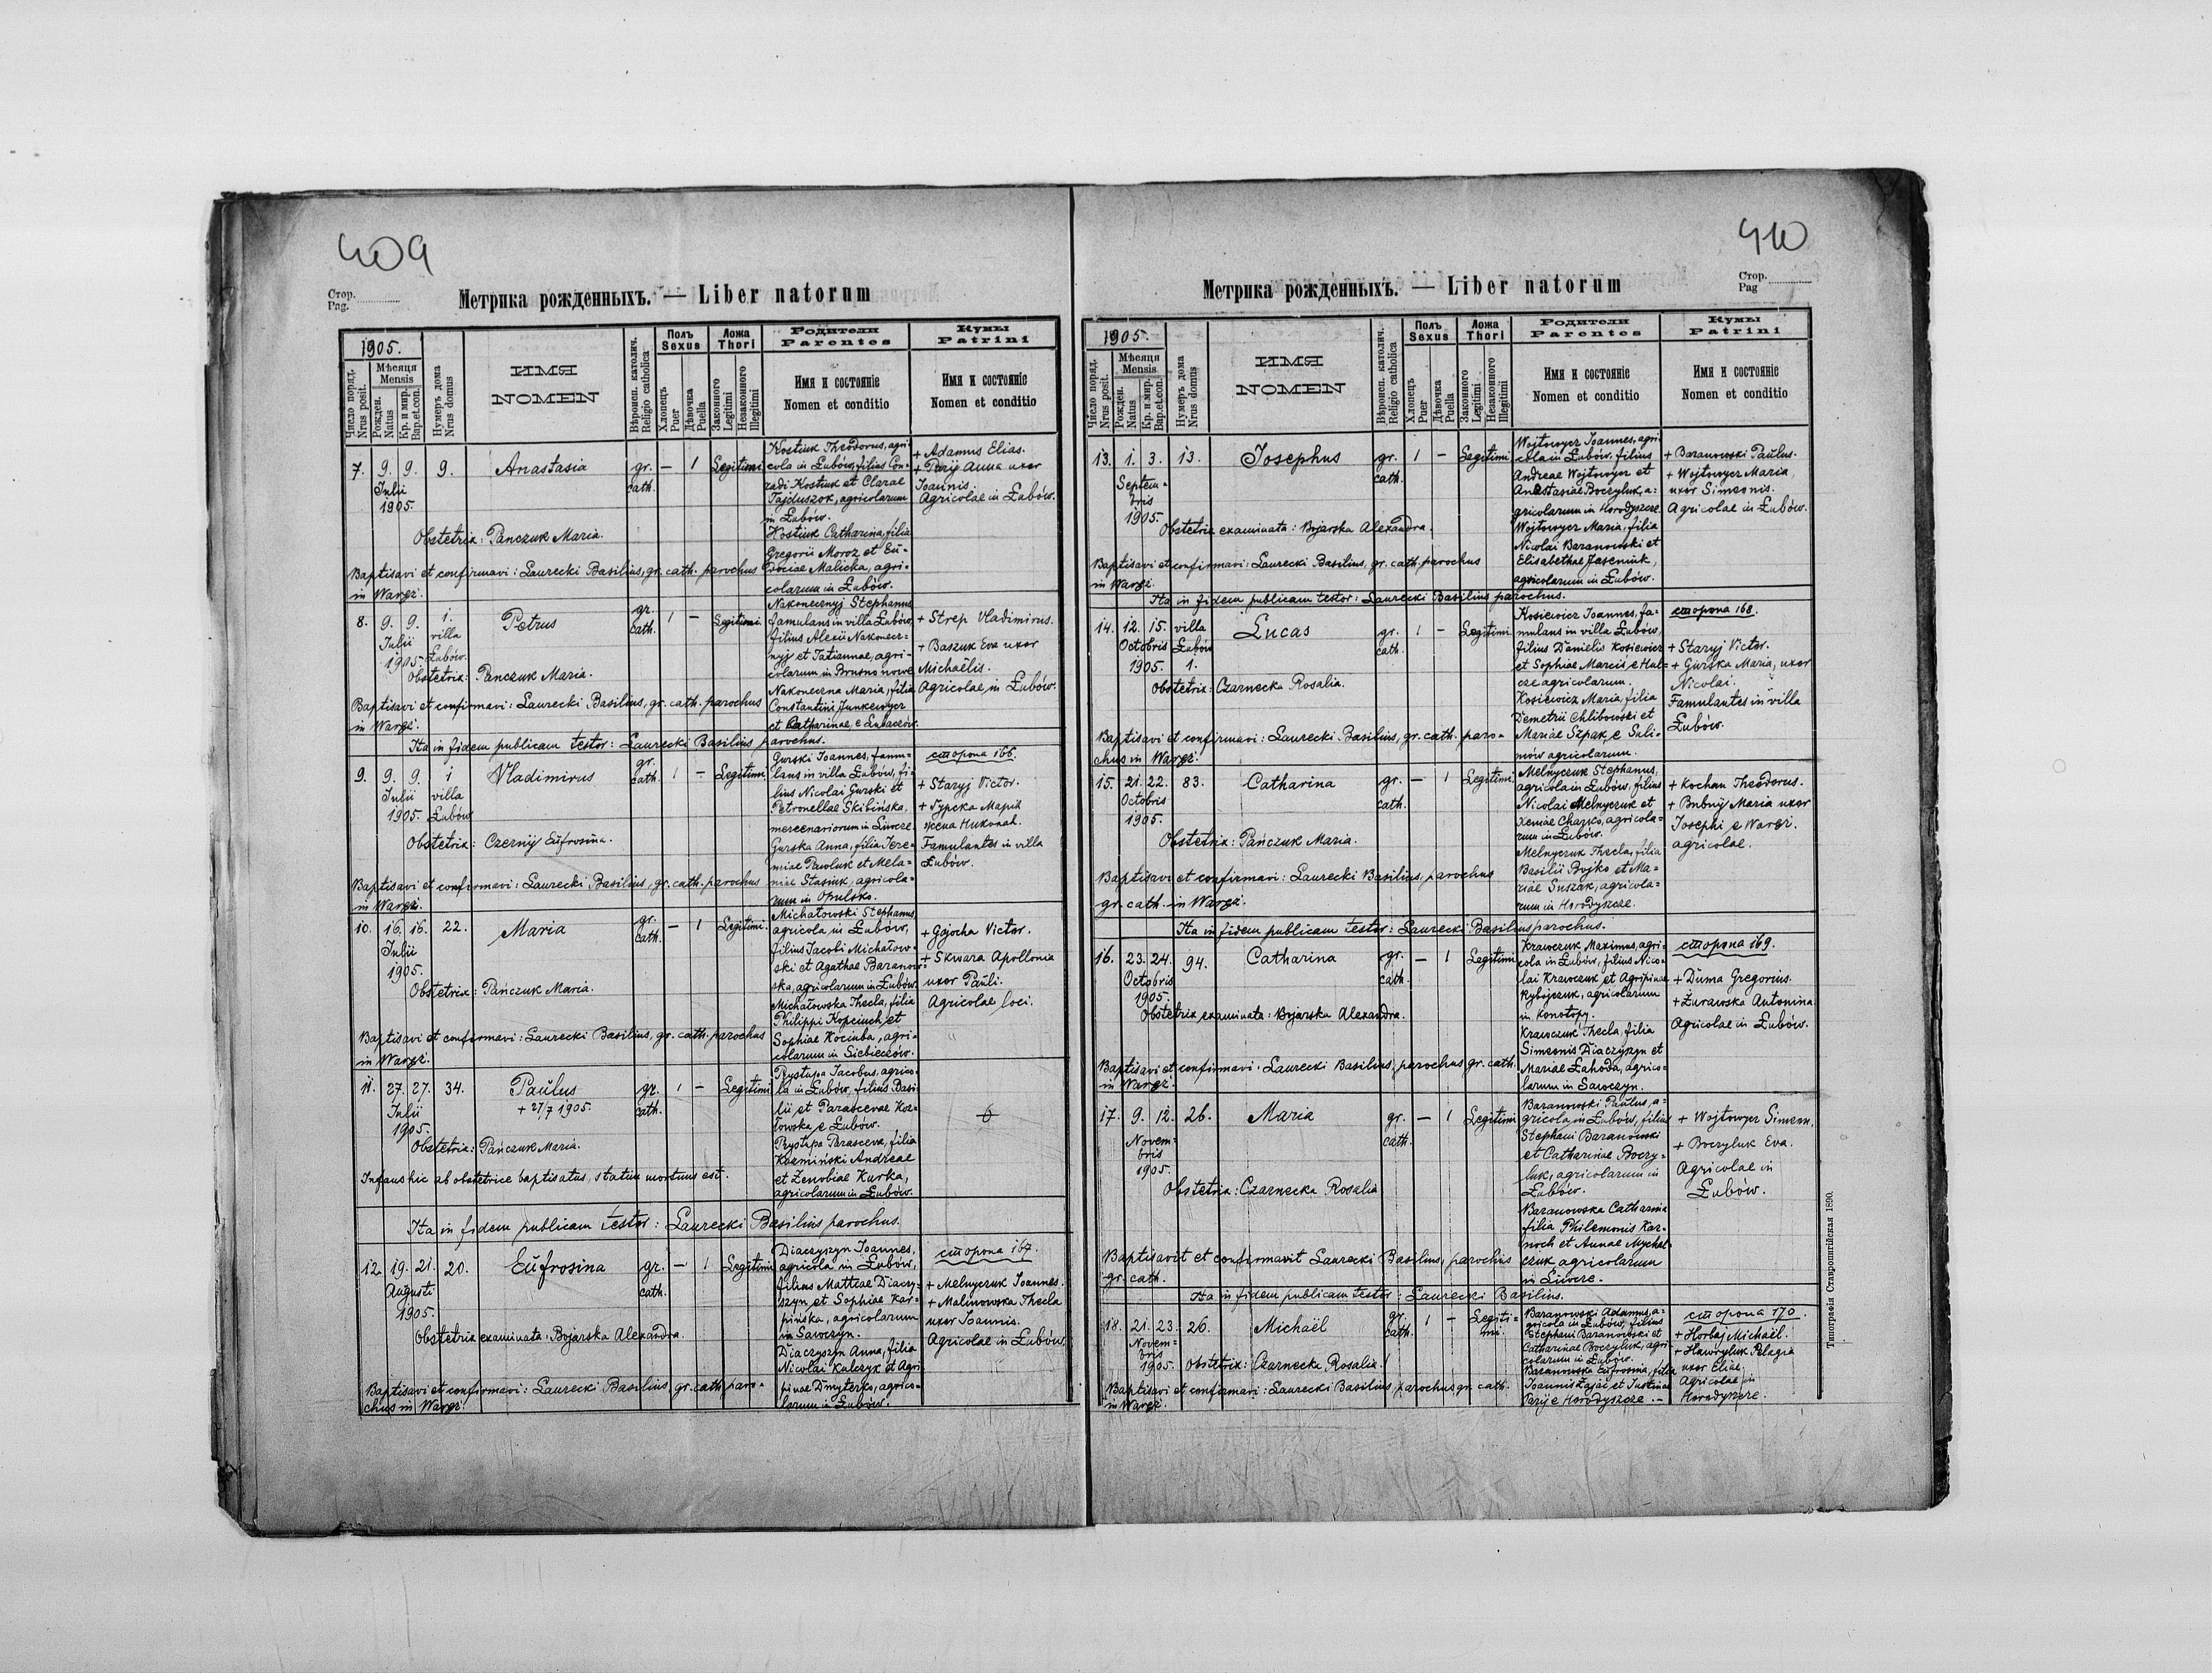 409
Стор.
Pag.
Метрика рожденныхъ. — Liber natorum
1905.
Число поряд.
Nrus posit.
Мѣсяця
Mensis
Рожден.
Natus
Кр. и мир.
Bap.et.con.
Нумеръ дома
Nrus domus
ИМЯ
NOMEN
Вѣроисп. католич.
Religio catholica
Полъ
Sexus
Хлопецъ
Puer
Дѣвочка
Puella
Ложа
Thori
Законного
Legitimi
Незаконного
Illegitimi
Родители
Parentes
Имя и состояніе
Nomen et conditio
Кумы
Patrini
Имя и состояніе
Nomen et conditio
7. 9. 9. 9. Anastasia gr. cath. — 1 Legitimi
Julii
1905.
Kostiuk Theodorus, agri-
cola in Łubów, filius Con-
radi Kostiuk et Clarae
Tajduszok, agricolarum
in Łubów.
Kostiuk Catharina, filia
Gregorii Moroz et Eu-
dociae Malicka, agri-
colarum in Łubów.
+ Adamus Elias.
+ Paryj Anna uxor
Joannis.
Agricolae in Łubów.
Obstetrix: Panczuk Maria.
Baptisavi et confirmavi: Laurecki Basilius, gr. cath. parochus
in Waręż.
8. 9. 9. 1. Petrus gr. cath. 1 — Legitimi
Julii villa
1905. Łubów.
Nakonecznyj Stephanus
famulans in villa Łubów,
filius Alexii Nakonecz-
nyj et Tatiannae, agri-
colarum in Brusno nowe
Nakoneczna Maria, filia
Constantini Junkewycz
et Catharinae, e Lubaczów.
+ Strep Vladimirus.
+ Baszuk Eva uxor
Michaëlis.
Agricolae in Łubów.
Obstetrix: Panczuk Maria.
Baptisavi et confirmavi: Laurecki Basilius, gr. cath. parochus
in Waręż.
Ita in fidem publicam testor: Laurecki Basilius parochus.
9. 9. 9. 1 Vladimirus gr. cath. 1 — Legitimi
Julii villa
1905. Łubów
Gurski Joannes, famu-
lans in villa Łubów, fi-
lius Nicolai Gurski et
Petronellae Skibińska,
mercenariorum in Liwcze.
Gurska Anna, filia Jere-
miae Pawluk et Mela-
niae Stasiuk, agricola-
rum in Opulsko.
сторона 166.
+ Staryj Victor.
+ Гурска Марія
жена Николая.
Famulantes in villa
Łubów.
Obstetrix: Czernij Eufrosina.
Baptisavi et confirmavi: Laurecki Basilius, gr. cath. parochus
in Waręż.
10. 16. 16. 22. Maria gr. cath. — 1 Legitimi.
Julii
1905.
Michałowski Stephanus
agricola in Łubów,
filius Jacobi Michałow-
ski et Agathae Baranow-
ska, agricolarum in Łubów
Michałowska Thecla, filia
Philippi Kopciuch et
Sophiae Kociuba, agri-
colarum in Siebieczów.
+ Gojocha Victor.
+ Skwara Apollonia
uxor Pauli.
Agricolae loci.
Obstetrix: Pańczuk Maria.
Baptisavi et confirmavi: Laurecki Basilius, gr. cath. parochus
in Waręż.
11. 27. 27. 34. Paulus gr. cath. 1 — Legitimi
Julii + 27/7 1905.
1905.
Prystupa Jacobus, agrico-
la in Łubów, filius Basi-
lii et Parascevae Koz-
łowska e Łubów.
Prystupa Parasceva, filia
Kozmiński Andreae
et Zenobiae Kurka,
agricolarum in Łubów.
Obstetrix: Pańczuk Maria.
Infans hic ab obstetrice baptisatus, statim mortuus est.
Ita in fidem publicam testor: Laurecki Basilius parochus.
12. 19. 21. 20. Eufrosina gr. cath. — 1 Legitimi
Augusti
1905.
Diaczyszyn Joannes,
agricola in Łubów,
filius Matteae Diaczy-
szyn et Sophiae Kar-
pińska, agricolarum
in Sawczyn.
Diaczyszyn Anna, filia
Nicolai Kulczyk et Agri-
pinae Dmyterko, agrico-
larum in Łubów.
сторона 167.
+ Melnyczuk Joannes.
+ Malinowska Thecla
uxor Joannis.
Agricolae in Łubów.
Obstetrix examinata: Bojarska Alexandra.
Baptisavi et confirmavi: Laurecki Basilius gr. cath. paro-
chus in Waręż.
410
Стор.
Pag
Метрика рожденныхъ. — Liber natorum
1905.
Число поряд.
Nrus posit.
Мѣсяця
Mensis
Рожден.
Natus
Кр. и мир.
Bap.et.con.
Нумеръ дома
Nrus domus
ИМЯ
NOMEN
Вѣроисп. католич.
Religio catholica
Полъ
Sexus
Хлопецъ
Puer
Дѣвочка
Puella
Ложа
Thori
Законного
Legitimi
Незаконного
Illegitimi
Родители
Parentes
Имя и состояніе
Nomen et conditio
Кумы
Patrini
Имя и состояніе
Nomen et conditio
13. 1. 3. 13. Josephus gr. cath. 1 — Legitimi
Septem-
bris
1905.
Wojtowycz Joannes, agri-
cola in Łubów, filius
Andreae Wojtowycz et
Anastasiae Boczyluk, a-
gricolarum in Horodyszcze.
Wojtowycz Maria, filia
Nicolai Baranowski et
Elisabethae Jaseniuk,
agricolarum in Łubów.
+ Baranowski Paulus.
+ Wojtowycz Maria,
uxor Simeonis.
Agricolae in Łubów.
Obstetrix examinata: Bojarska Alexandra.
Baptisavi et confirmavi: Laurecki Basilius, gr. cath. parochus
in Waręż.
Ita in fidem publicam testor: Laurecki Basilius parochus.
14. 12. 15. villa Lucas gr. cath. 1 — Legitimi
Octobris Łubów
1905. 1.
Kosiewicz Joannes, fa-
mulans in villa Łubów,
filius Danielis Kosiewicz
et Sophiae Marciś e Hul-
cze agricolarum.
Kosiewicz Maria, filia
Demetrii Chlibowski et
Mariae Szpak e Suli-
mów agricolarum.
сторона 168.
+ Staryj Victor.
+ Gurska Maria, uxor
Nicolai.
Famulantes in villa
Łubów.
Obstetrix: Czarnecka Rosalia.
Baptisavi et confirmavi: Laurecki Basilius, gr. cath. paro-
chus in Waręż.
15. 21. 22. 83. Catharina gr. cath. — 1 Legitimi
Octobris
1905.
Melnyczuk Stephanus,
agricola in Łubów, filius
Nicolai Melnyczuk et
Xeniae Charko, agricola-
rum in Łubów.
Melnyczuk Thecla, filia
Basilii Bojko et Ma-
riae Suszak, agricola-
rum in Horodyszcze.
+ Kochan Theodorus.
+ Bubnij Maria uxor
Josephi e Waręż.
agricolae.
Obstetrix: Pańczuk Maria.
Baptisavi et confirmavi: Laurecki Basilius, parochus
gr. cath. in Waręż.
Ita in fidem publicam testor: Laurecki Basilius parochus.
16. 23. 24. 94. Catharina gr. cath. — 1 Legitimi
Octobris
1905.
Krawczuk Maximus, agri-
cola in Łubów, filius Nico-
lai Krawczuk et Agripinae
Rybijczuk, agricolarum
in Konotopy.
Krawczuk Thecla, filia
Simeonis Diaczyszyn et
Mariae Łahoda, agrico-
larum in Sawczyn.
сторона 169.
+ Duma Gregorius.
+ Żurawska Antonina
Agricolae in Łubów.
Obstetrix examinata: Bojarska Alexandra.
Baptisavi et confirmavi: Laurecki Basilius, parochus gr. cath.
in Waręż.
17. 9. 12. 26. Maria gr. cath. — 1 Legitimi
Novem-
bris
1905.
Baranowski Paulus, a-
gricola in Łubów, filius
Stephani Baranowski
et Catharinae Boczy-
luk, agricolarum in
Łubów.
Baranowska Catharina
filia Philemonis Kar-
noch et Annae Mychal-
czuk agricolarum
in Liwcze.
+ Wojtowycz Simeon.
+ Boczyluk Eva.
Agricolae in
Łubów.
Obstetrix: Czarnecka Rosalia
Baptisavit et confirmavit Laurecki Basilius, parochus
gr. cath.
Ita in fidem publicam testor: Laurecki Basilius.
18. 21. 23. 26. Michaël gr. cath. 1 — Legiti-
mi
Novem-
bris
1905.
Baranowski Adamus, a-
gricola in Łubów, filius
Stephani Baranowski et
Catharinae Boczyluk, agri-
colarum in Łubów.
Baranowska Eufrosina, filia
Joannis Zajać et Justinae
Paryj e Horodyszcze. —
сторона 170.
+ Horbaj Michaël.
+ Hawryluk Pelagia
uxor Eliae.
Agricolae in
Horodyszcze.
Obstetrix: Czarnecka Rosalia.
Baptisavi et confirmavi: Laurecki Basilius parochus gr. cath.
in Waręż.
Типографія Ставропигійская 1890.